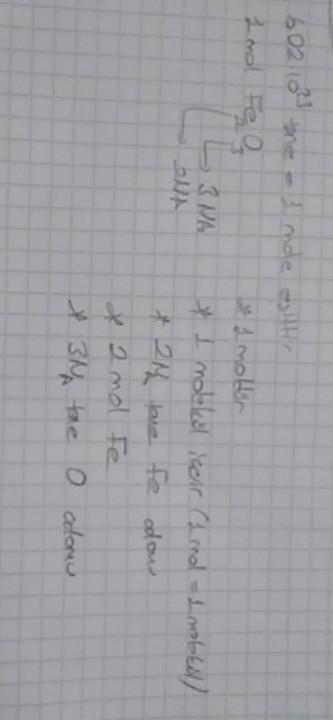 6.02 10²³ tane = 1 mole eşittir.
1 mol Fe₂O₃
3 NA
2NA
* 1 moldür
* 1 molekül içerir (1 mol = 1 molekül)
* 2NA tane Fe atomu
* 2 mol Fe
* 3NA tane O atomu